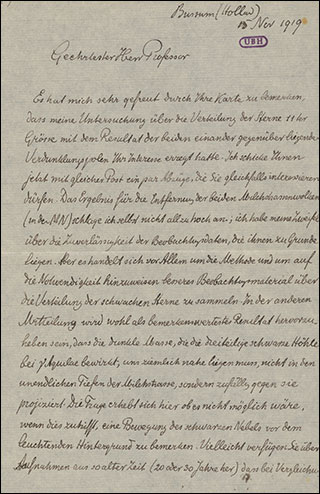 Bussum (Holland)
13 Nov 1919
UBH
Geehrtester Herr Professor
Es hat mich sehr gefreut durch Ihre Karte zu bemerken,
dass meine Untersuchung über die Verteilung der Sterne 11ter
Grösse mit dem Resultat der beiden einander gegenüber liegenden
Verdunklungspolen Ihr Interesse erregt hatte. Ich schicke Ihnen
jetzt mit gleicher Post ein paar Abzüge, die Sie gleichfalls interessieren
dürften. Das Ergebnis für die Entfernung der beiden Milchstrassenwolken
(in den MN) schlage ich selbst nicht allzu hoch an; ich habe meine Zweifel
über die Zuverlässigkeit der Beobachtungsdaten, die ihnen zu Grunde
liegen. Aber es handelt sich vor Allem um die Methode und um auf
die Notwendigkeit hinzuweisen besseres Beobachtungsmaterial über
die Verteilung der schwachen Sterne zu sammeln. In der anderen
Mitteilung wird wohl als bemerkenswertestes Resultat hervorzu-
heben sein, dass die dunkle Masse, die die dreiteilige schwarze Höhle
bei γ Aquilae bewirkt, uns ziemlich nahe liegen muss, nicht in den
unendlichen Tiefen der Milchstrasse, sondern zufällig gegen sie
projiziert. Die Frage erhebt sich hier ob es nicht möglich wäre,
wenn dies zutrifft, eine Bewegung des schwarzen Nebels vor dem
leuchtenden Hintergrund zu bemerken. Vielleicht verfügen Sie über
Aufnahmen aus so alter Zeit (20 oder 30 Jahre her) dass bei Vergleichung